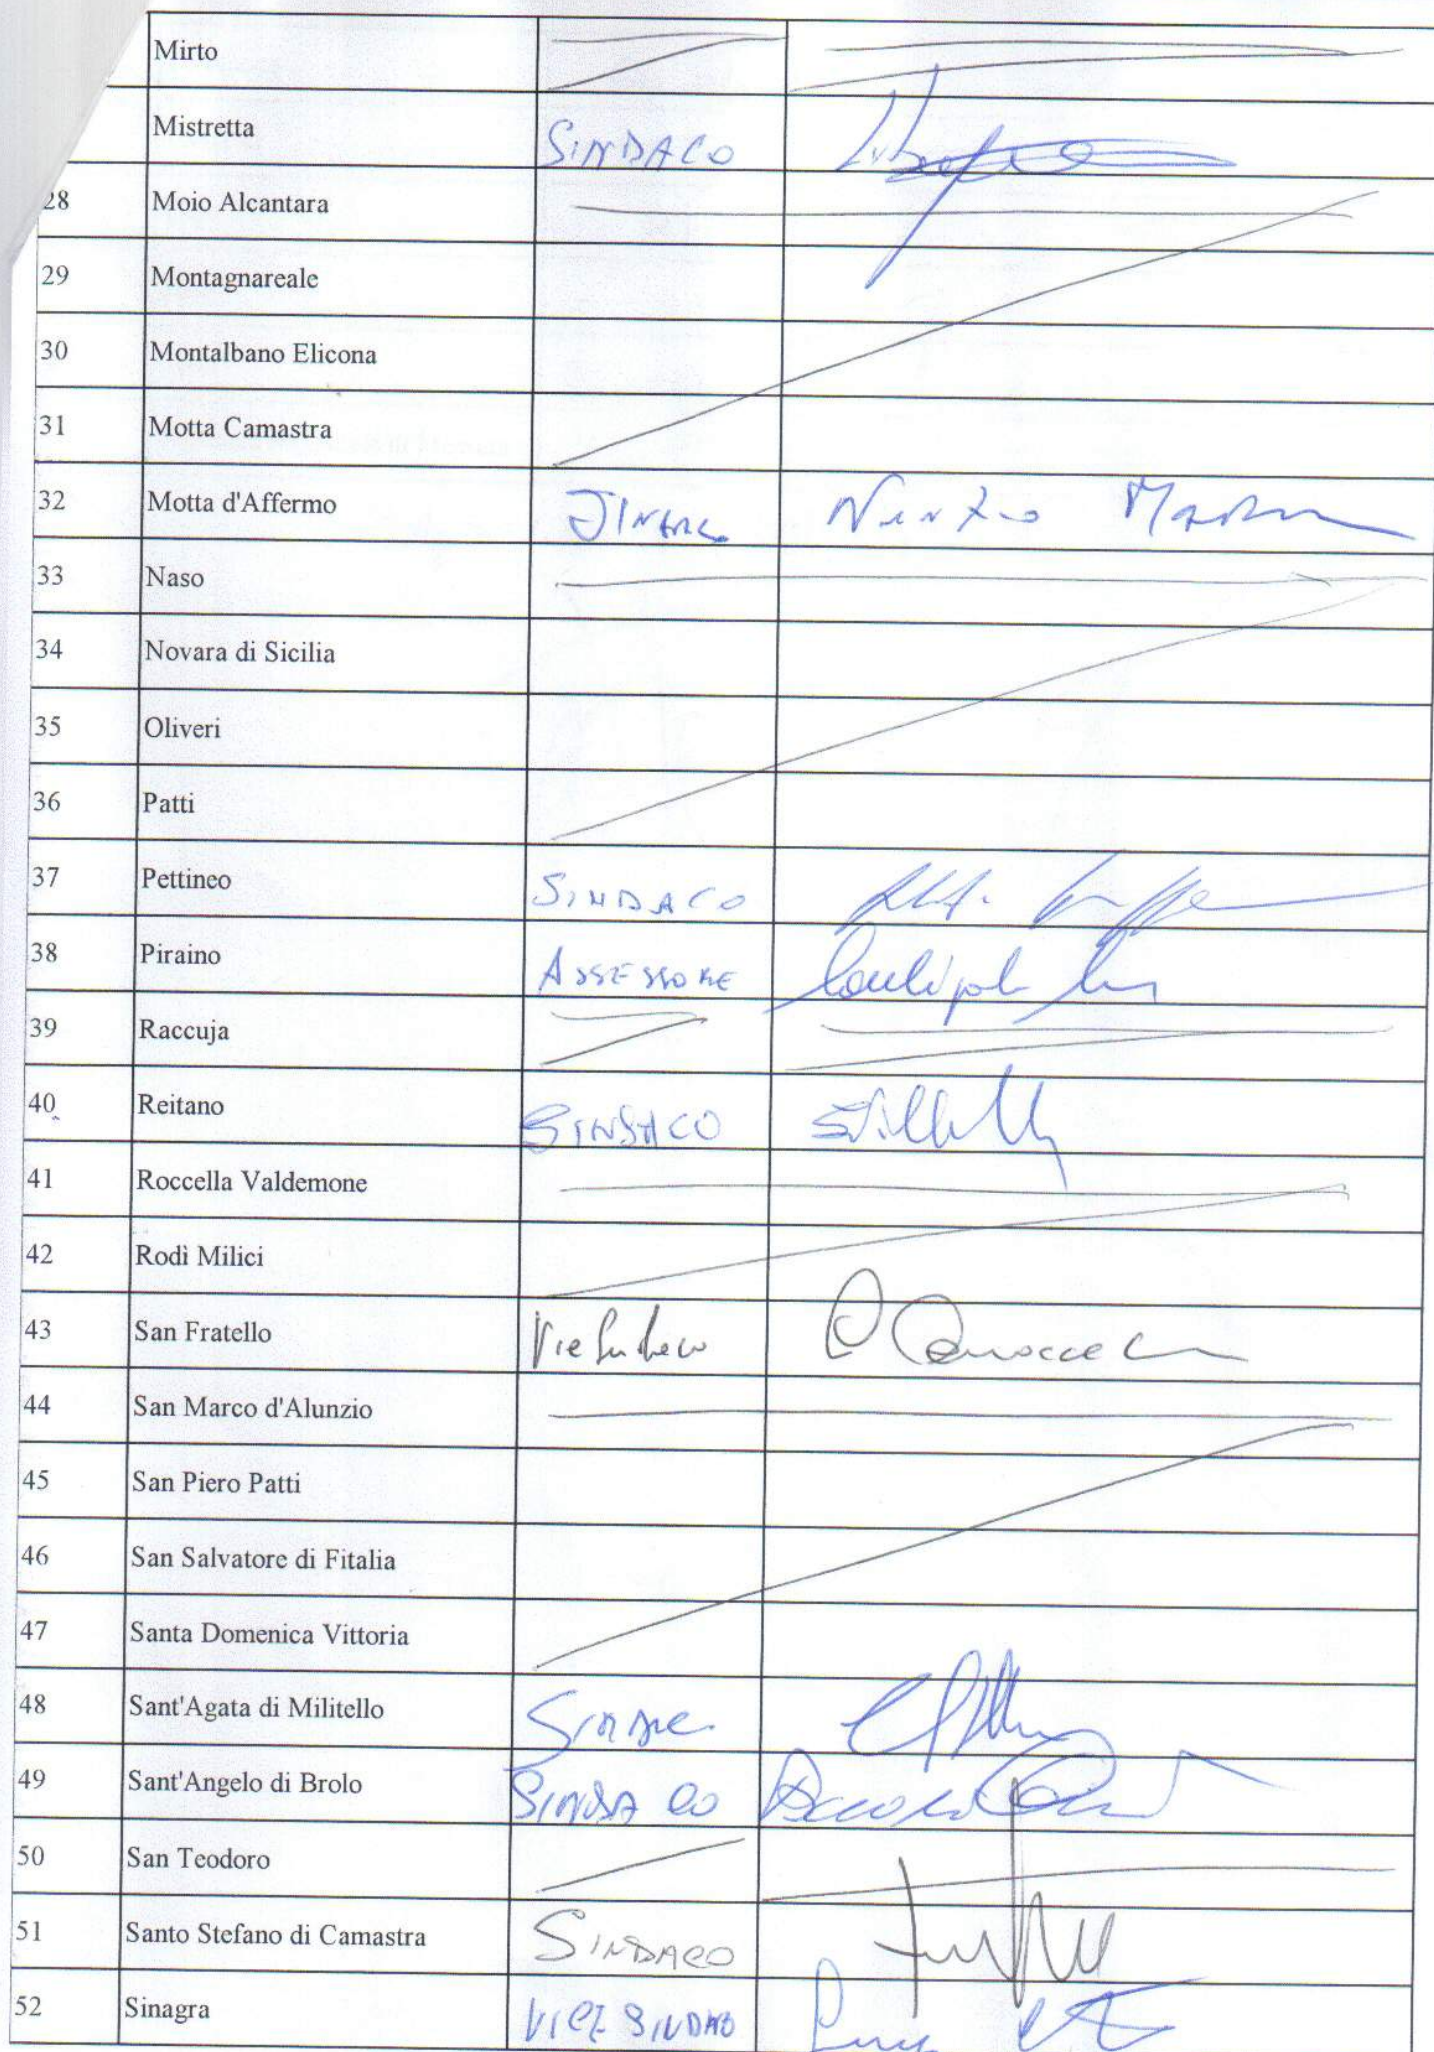 Mirto
Mistretta SINDACO
28 Moio Alcantara
29 Montagnareale
30 Montalbano Elicona
31 Motta Camastra
32 Motta d'Affermo
33 Naso
34 Novara di Sicilia
35 Oliveri
36 Patti
37 Pettineo SINDACO
38 Piraino ASSESSORE
39 Raccuja
40 Reitano SINDACO
41 Roccella Valdemone
42 Rodì Milici
43 San Fratello
44 San Marco d'Alunzio
45 San Piero Patti
46 San Salvatore di Fitalia
47 Santa Domenica Vittoria
48 Sant'Agata di Militello
49 Sant'Angelo di Brolo SINDACO
50 San Teodoro
51 Santo Stefano di Camastra SINDACO
52 Sinagra VICE SINDACO